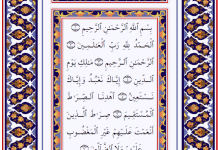 بِسْمِ ٱللَّهِ ٱلرَّحْمَٰنِ ٱلرَّحِيمِ ۝
ٱلْحَمْدُ لِلَّهِ رَبِّ ٱلْعَٰلَمِينَ ۝
ٱلرَّحْمَٰنِ ٱلرَّحِيمِ ۝ مَٰلِكِ يَوْمِ
ٱلدِّينِ ۝ إِيَّاكَ نَعْبُدُ وَإِيَّاكَ
نَسْتَعِينُ ۝ ٱهْدِنَا ٱلصِّرَٰطَ
ٱلْمُسْتَقِيمَ ۝ صِرَٰطَ ٱلَّذِينَ
أَنْعَمْتَ عَلَيْهِمْ غَيْرِ ٱلْمَغْضُوبِ
عَلَيْهِمْ وَلَا ٱلضَّآلِّينَ ۝